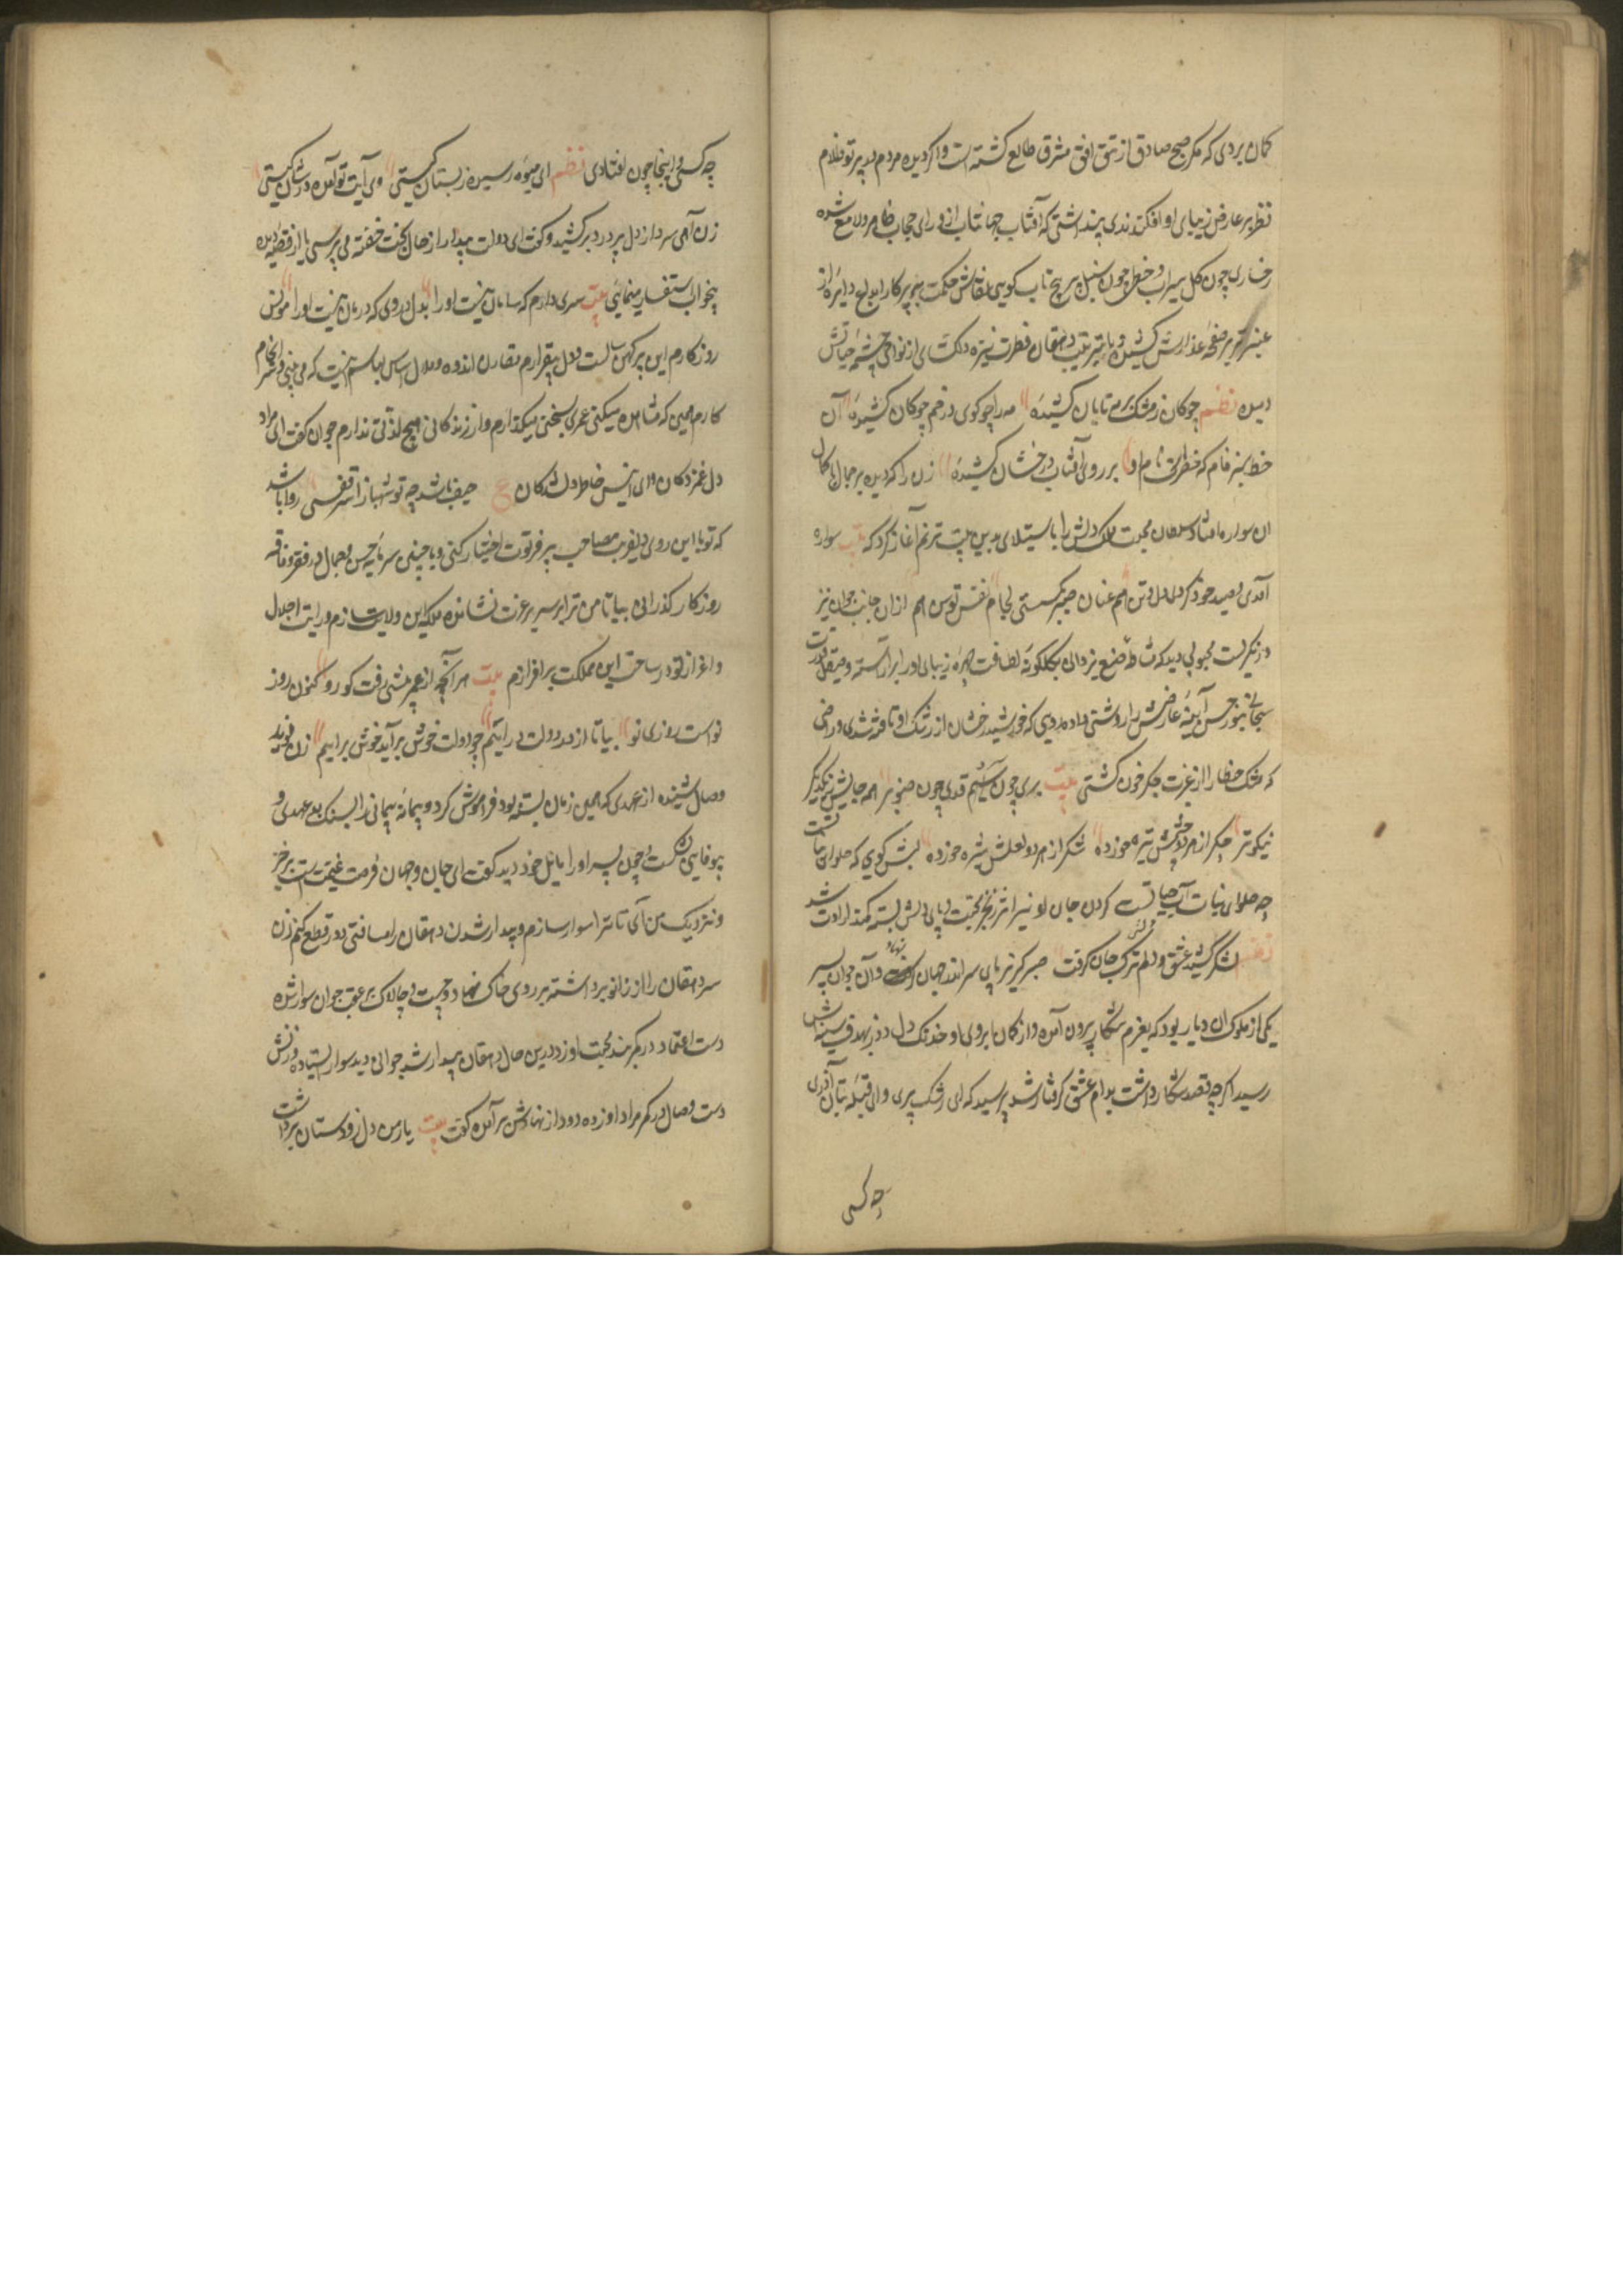 کمان بردی که مکر صبح صادق از تتق افق مشرق طالع کشته است و اکر دیده مردم بد پرتو ظلام
نظر بر عارض زیبای او افکندندی پنداشتی که آفتاب جهانتاب از ورای حجاب ظاهر و لامع شده
رخساری چون کل سیراب و خطی چون سنبل پر پیچ تاب کویی نقاش حکمت بپرکار ابداع دایره از
عنبر تر بر صفحهٔ عذارش کشیده و یا بتربیت دهقان فطرت سبزه دلکشای از نواحی چشمهٔ حیاتش
دمیده نظم چوکان ز مشک بر مه تابان کشیدهٔ مه را چو کوی در خم چوکان کشیدهٔ آن
خط سبز فام که خطیست نام او بر روی آفتاب درخشان کشیدهٔ زن را که دیده بر جمال باکمال
ان سوار افتاد سلطان محبت ملک دلش را باستیلای بدین بیت ترنم آغاز کرد که بیت سواره
آمدی و صید خود کردی دل و تن هم عنان صبر بکسستی لجام نفس توسن هم ازان جانب جوان نیز
در نکریست محبوبی دید که مشاطهٔ صنع یزدانی بکلکونهٔ لطافت چهرهٔ زیبای او را براراسته و صیقل قدرت
سبحانی بنور حسن آیینهٔ عارضش را روشنی داده رویی که خورشید رخشان از رشک او تافته شدی و زلفی
که مشک خطا را از غیرت جکر خون کشتی بیت بری چون سیم قدی چون صنوبر همه جایش ز یکدیکر
نیکوتر جکر از مردو چشمش تیره خورده شکر از هر دو لعلش شیره خورده لبش کویی که حلوای نباتست
چه حلوای نبات آب حیاتست کردن جان او نیز در زنجیر محبت و پای دلش بسته کمند ارادت شد
نظم لشکر کشید عشق و دلم ترک جان کرفت صبر کریز پای سر اندر جهان کرفت و آن جوان پسر
یکی از ملوک ان دیار بود که بعزم شکار بیرون آمده و از کمان ابروی او خدنک دلدوز بهدف سینه‌اش
رسید اکرچه قصد شکار داشت بدام عشق کرفتار شد پرسید که ای رشک پری و ای قبله بتان آذری
چه کسی
چه کسی و اینجا چون افتادی نظم ای میوه رسیده ز بستان کیستی وی آیت نو آمده در شان کیستی
زن آهی سرد از دل پر درد برکشید و کفت ای دولت بیدار از حال بخت خفته می‌پرسی یا از قضیه دیده
بیخواب استفسار مینمایی بیت سری دارم که سامان نیست او را بدل دردی که درمان نیست او را مونس
روزکارم این پیر کهن سالست و دل بیقرارم مقارن اندوه و ملال اساس معاشم اینست که می‌بینی و سرانجام
کارم همین که مشاهده میکنی عمری بسختی میکذارم و از زندکانی هیچ لذتی ندارم جوان کفت ای مراد
دل غمزدکان و ای انیس خاطر دلشدکان ع حیف باشد چه تو شهباز اسیر قفسی روا باشد
که تو با این روی دلفریب مصاحب پیر فرتوت اختیار کنی و با چنین سرمایه حسن و جمال در فقر و فاقه
روزکار کذرانی بیا تا من ترا بر سریر عزت نشانده ملکه این ولایت سازم و رایت اجلال
و اعزاز تو در ساحت این مملکت برافرازم بیت هر آنچه از عمر پیشی رفت کو رو کنون روز
نو است روزی نو بیا تا از در دولت درآییم چو دولت خوش برآید خوش برآییم زن نوید
وصال شنیده از عهدی که همین زمان بسته بود فراموش کرد و پیمانه پیمانی را بسنک بد عهدی و
بیوفایی شکست و چون پسر او را مایل خود دید کفت ای جان و جهان فرصت غنیمت است برخیز
و نزدیک من آی تا ترا سوار سازم و بیدار شدن دهقان را مسافتی دور قطع کنیم زن
سر دهقان را از زانو برداشته بر روی خاک نهاد و چست و چالاک بر عقب جوان سوار شده
دست اعتماد در کمربند محبت او زد درین حال دهقان بیدار شد جوانی دید سوار ایستاده و زنش
دست وصال در کمر مراد او زده دود از نهادش برآمده کفت بیت یار من دل ز دوستان برداشت